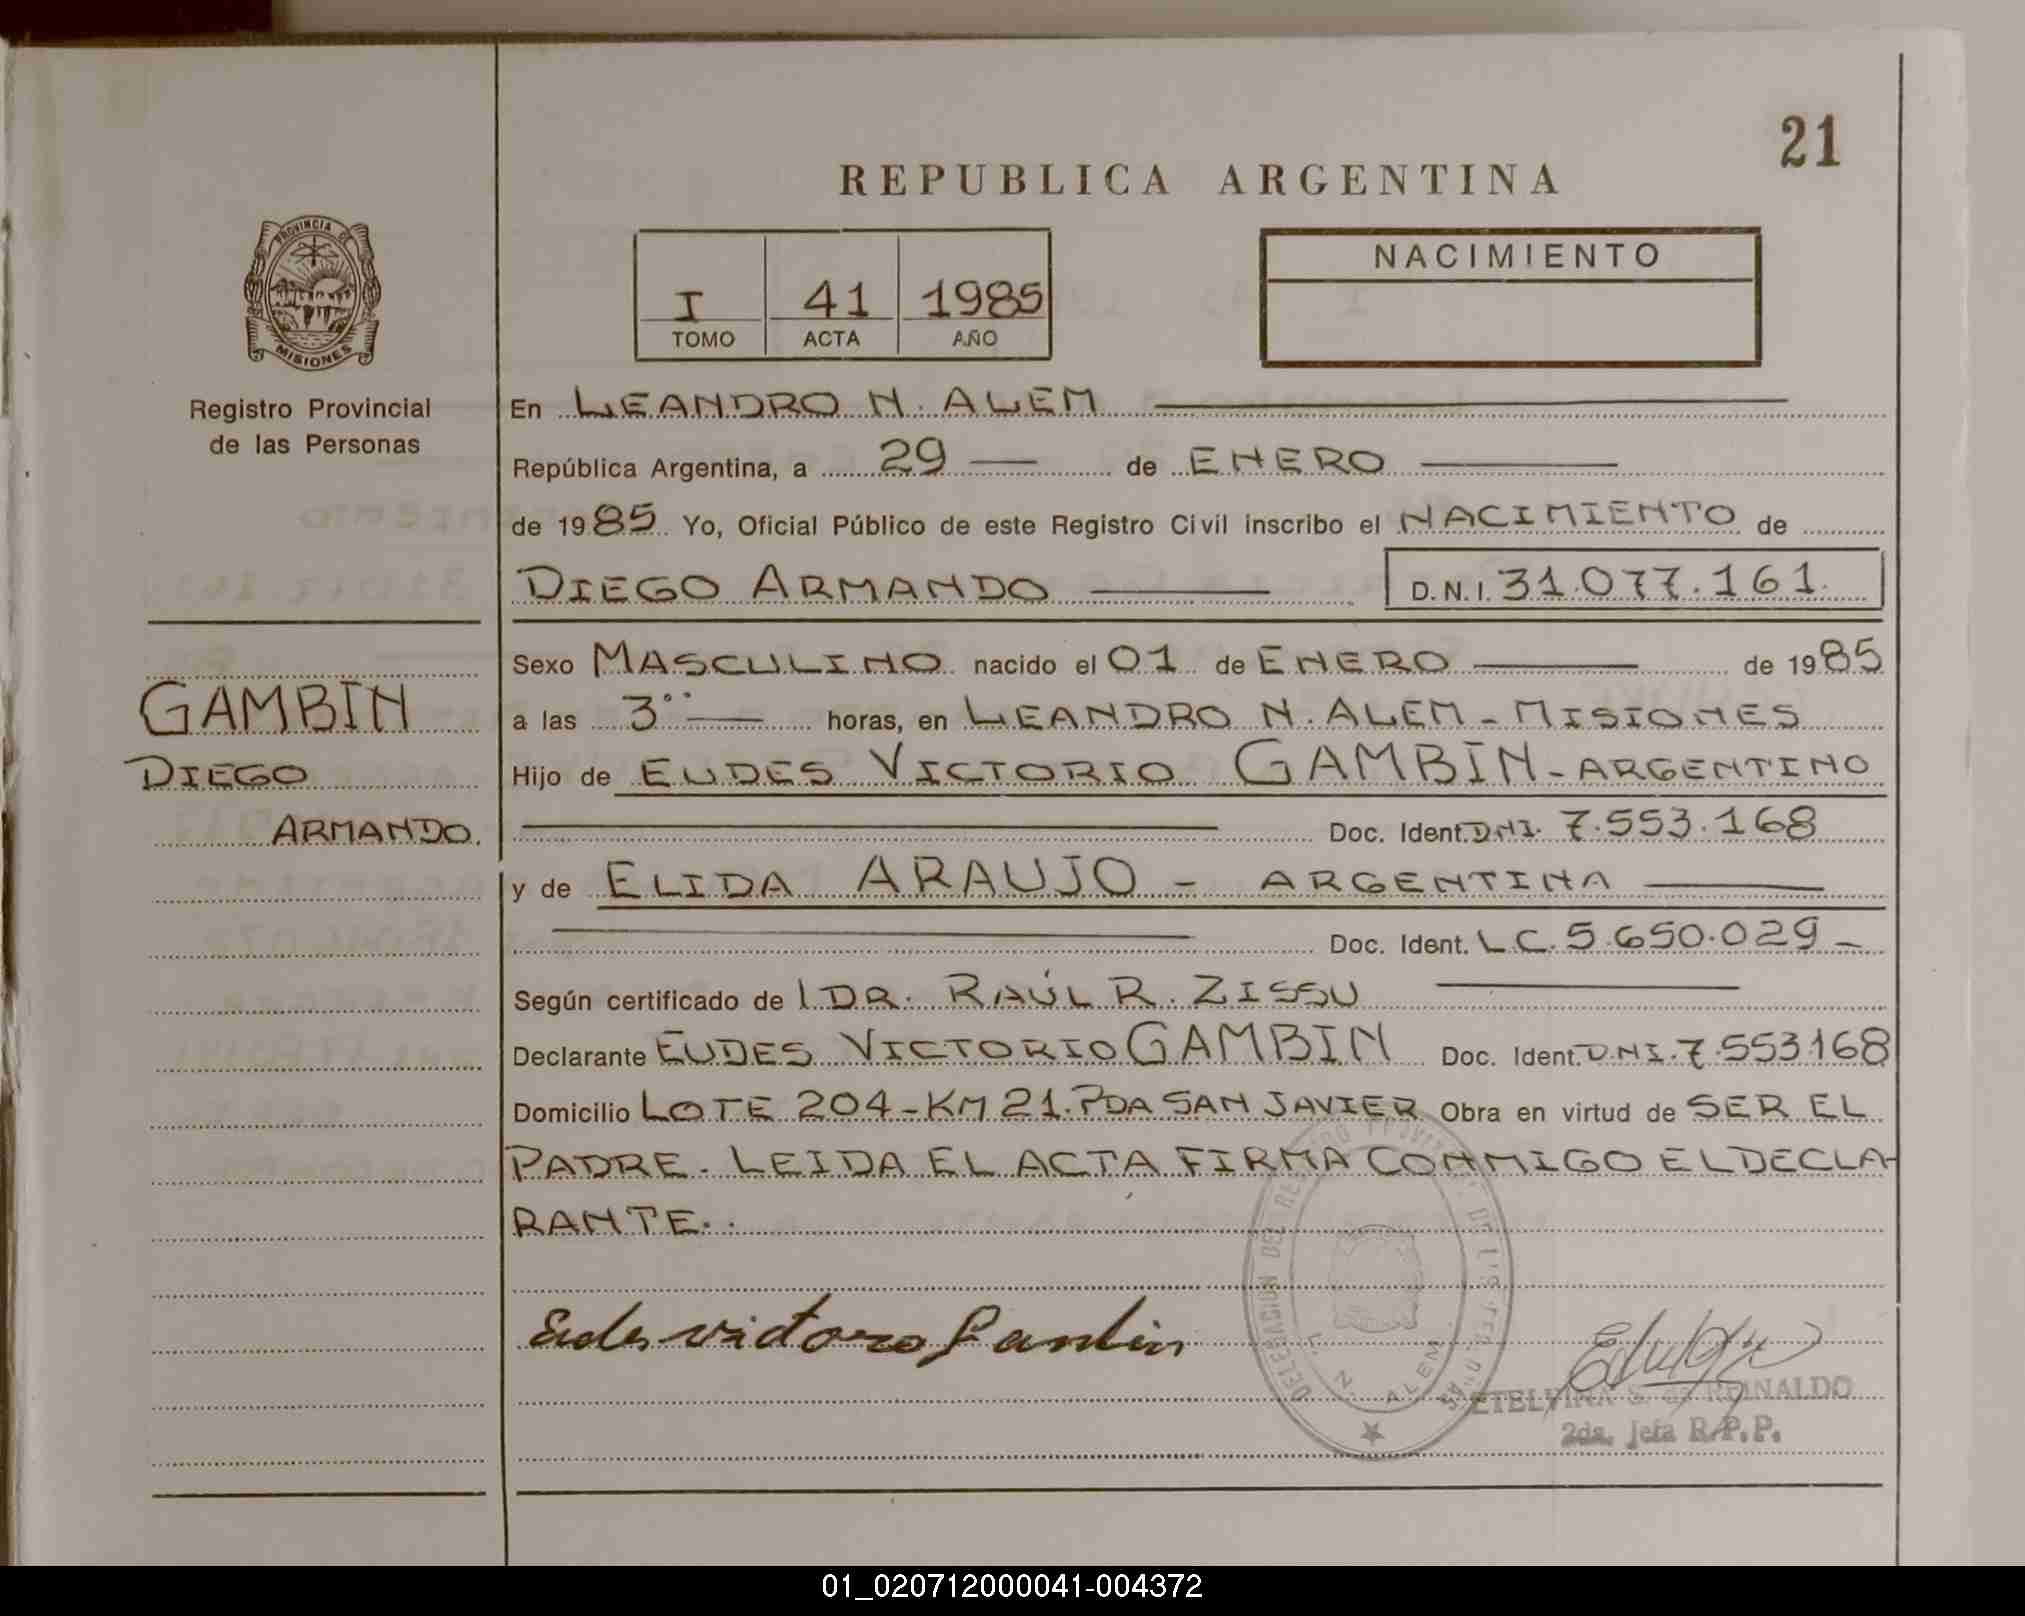 21
REPUBLICA ARGENTINA
PROVINCIA DE
MISIONES
Registro Provincial
de las Personas
I 41 1985
TOMO ACTA AÑO
NACIMIENTO
En LEANDRO N. ALEM
República Argentina, a 29 de ENERO
de 1985 Yo, Oficial Público de este Registro Civil inscribo el NACIMIENTO de
DIEGO ARMANDO D.N.I. 31.077.161.
GAMBIN
DIEGO
ARMANDO.
Sexo MASCULINO nacido el 01 de ENERO de 1985
a las 3°° horas, en LEANDRO N. ALEM - MISIONES
Hijo de EUDES VICTORIO GAMBIN - ARGENTINO
Doc. Ident. DNI. 7.553.168
y de ELIDA ARAUJO - ARGENTINA
Doc. Ident. L.C. 5.650.029 -
Según certificado de l DR. RAÚL R. ZISSU
Declarante EUDES VICTORIO GAMBIN Doc. Ident. D.NI. 7.553.168
Domicilio LOTE 204 - KM 21. PDA SAN JAVIER Obra en virtud de SER EL
PADRE. LEIDA EL ACTA FIRMA CONMIGO EL DECLA-
RANTE.
Eudes victorio Gambin
DELEGACION DEL REGISTRO
L. N. ALEM
ETELVINA S. de REINALDO
2da. Jefa R.P.P.
01_020712000041-004372